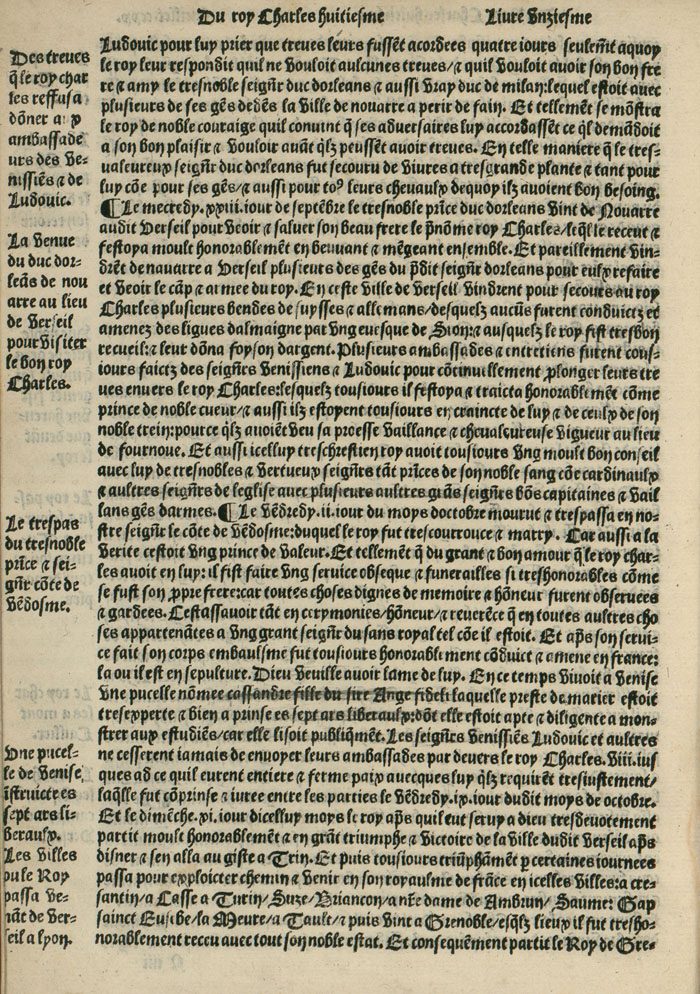 Du roy Charles huitiesme Livre Unziesme
Des treves
q̃ le roy char
les reffusa
dõner a
ambassade
urs des Ve-
nissiẽs ⁊ de
Ludovic.
La venue
du duc dor-
leãs de nou
arre au lieu
de Verseil
pour visiter
le bon roy
Charles.
Le trespas
du tresnoble
prĩce ⁊ sei-
gñr cõte de
Vẽdosme.
Une pucel-
le de Venise
ĩstruicte es
sept ars li-
beraulx.
Les villes
ou le Roy
passa ve-
nãt de Ver-
seil a lyon.
Ludovic pour luy prier que treues leurs fussẽt acordees quatre iours seulemẽt aquoy
le roy leur respondit quil ne vouloit aulcunes treues/⁊ quil vouloit avoir son bon fre
re ⁊ amy le tresnoble seigñr duc dorleans ⁊ aussi vray duc de milan:lequel estoit avec
plusieurs de ses gẽs dedẽs la ville de nouarre a perir de fain. Et tellemẽt se mõstra
le roy de noble couraige quil convint q̃ ses adversaires luy accordassẽt ce q̃l demãdoit
a son bon plaisir ⁊ vouloir avãt q̃lz peussẽt avoir treves. En telle maniere q̃ le tres-
valeureux seigñr duc dorleans fut secouru de vivres a tresgrande plante ⁊ tant pour
luy cõe pour ses gẽs/⁊ aussi pour toꝰ leurs chevaulx dequoy ilz avoient bon besoing.
¶Le mecredy .xxiii. iour de septẽbre le tresnoble prĩce duc dorleans vint de Nouarre
audit Verseil pour veoir ⁊ saluer son beau frere le p̃nõme roy Charles/leq̃l le receut ⁊
festoya moult honorablemẽt en beuvant ⁊ mẽgeant ensemble. Et pareillement vin-
drẽt de navarre a Verseil plusieurs des gẽs du p̃dit seigñr dorleans pour eulx refaire
et veoir le cãp ⁊ armee du roy. En ceste ville de Verseil vindrent pour secours au roy
Charles plusieurs bendes de suysses ⁊ allemans/desquelz aucũs furent conduictz et
amenez des ligues dalmaigne par ung evesque de Sion:⁊ ausquelz le roy fist tresbon
recueil:⁊ leur dõna foyson dargent. Plusieurs ambassades ⁊ entretiens furent cous-
iours faictz des seigñrs Venissiens ⁊ Ludovic pour cõtinuellement plonger leurs tre
ves envers le roy Charles:lesquelz tousiours il festoya ⁊ traicta honorablemẽt cõme
prince de noble cueur/⁊ aussi ilz estoyent tousiours en craincte de luy ⁊ de ceulx de son
noble trein:pource q̃lz avoiẽt veu sa proesse vaillance ⁊ chevalereuse vigueur au lieu
de fournove. Et aussi icelluy treschrestien roy avoit tousiours ung moult bon conseil
avec luy de tresnobles ⁊ vertueux seigñrs tãt prĩces de son noble sang cõe cardinaulx
⁊ aultres seigñrs de leglise avec plusieurs aultres grãs seigñrs bõs capitaines ⁊ vail
lans gẽs darmes. ¶Le vẽdredy .ii. iour du moys doctobre mourut ⁊ trespassa en no-
stre seigñr le cõte de vẽdosme:duquel le roy fut trescourrouce ⁊ marry. Car aussi a la
verite cestoit ung prince de valeur. Et tellemẽt q̃ du grant ⁊ bon amour q̃ le roy char-
les avoit en luy: il fist faire ung service obseque ⁊ funerailles si treshonorables cõme
se fust son ppre frere:car toutes choses dignes de memoire ⁊ hõneur furent observees
⁊ gardees. Cestassavoir tãt en cerymonies/hõneur/⁊ reverẽce q̃ en toutes aultres cho
ses appartenãtes a ung grant seigñr du sans royal tel cõe il estoit. Et ap̃s son servi-
ce fait son corps embaulsme fut tousiours honorablement cõduict ⁊ amene en france:
la ou il est en sepulture. Dieu vueille avoir lame de luy. En ce temps vivoit a Venise
une pucelle nõmee cassandre fille du sire Ange fideli laquelle preste de marier estoit
tresexperte ⁊ bien aprinse es sept ars liberaulx:dõt elle estoit apte ⁊ diligente a mon-
strer aux estudiẽs/car elle lisoit publiqmẽt. Les seigñrs Venissiẽs Ludovic et aultres
ne cesserent iamais de envoyer leurs ambassades par devers le roy Charles .viii. ius
ques ad ce quil eurent entiere ⁊ ferme paix avecques luy q̃lz requirẽt tresiustement/
laq̃lle fut cõprinse ⁊ iuree entre les parties le vẽdredy .ix. iour dudit moys de octobre.
Et le dimẽche .xi. iour dicelluy moys le roy ap̃s quil eut servy a dieu tresdevotement
partit moult honorablemẽt ⁊ en grãt triumphe ⁊ victoire de la ville dudit Verseil ap̃s
disner ⁊ sen alla au giste a Trin. Et puis tousiours triũphãmẽt p certaines iournees
passa pour exploicter chemin ⁊ venir en son royaulme de frãce en icelles villes:a cre-
santin/a Casse a Turin/Suze/Briancon/a ñre dame de Ambrun/Saume: Gap
sainct Eusebe/la Meure/a Tault/⁊ puis vint a Grenoble/esq̃lz lieux il fut tresho-
norablement receu avec tout son noble estat. Et consequẽment partit le Roy de Gre-